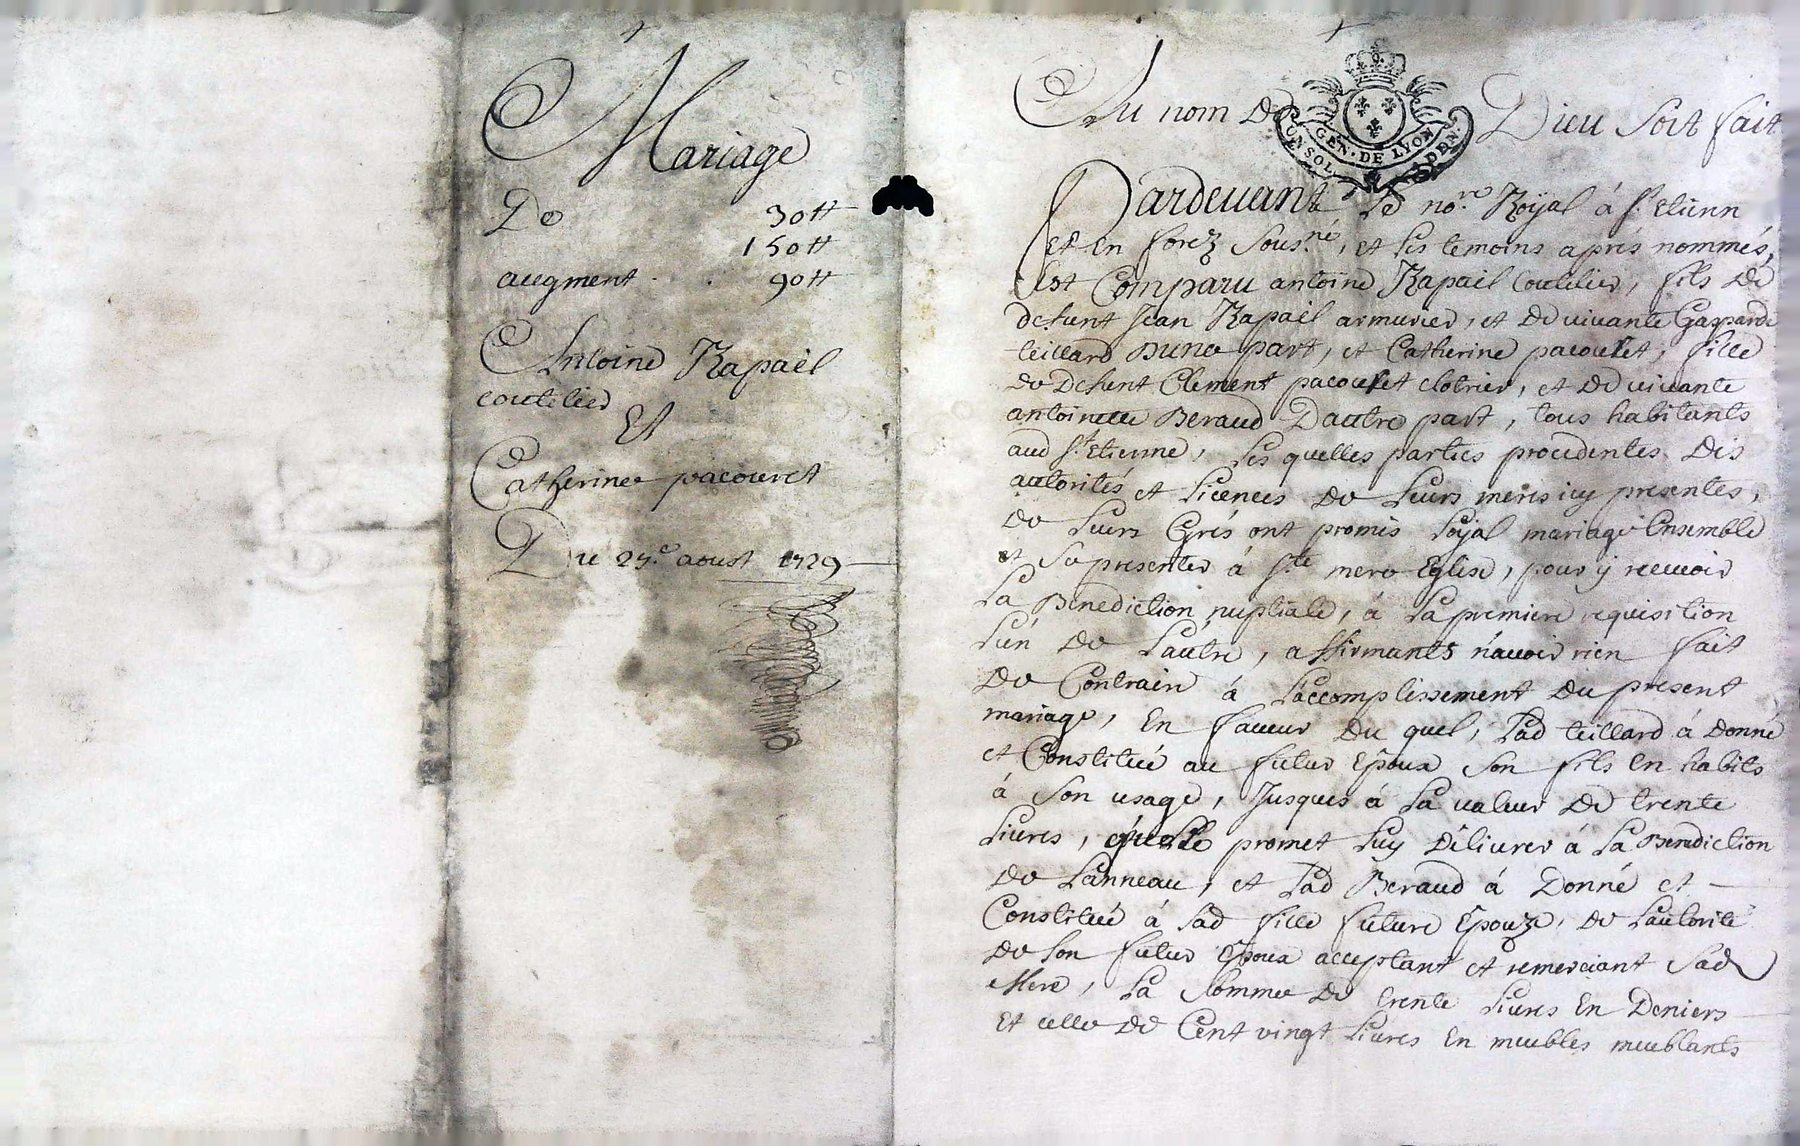 Mariage
De 30tt
150tt
augment . . 90tt
Antoine Rapaël
coutelier
Et
Catherine pacouret
Du 27.e aoust 1729
Au nom de Dieu soit fait
GEN. DE LYON
UN SOL
Pardevant Le no.re Royal à St. Etienn
et en forez sous.né, et les temoins après nommés,
est Comparu antoine Rapaël coutelier, fils de
defunt Jean Rapaël armurier, et de vivante Gasparde
teillard D'une part, et Catherine pacouret, fille
de defunt Clement pacouret clotrier, et de vivante
antoinette Beraud D'autre part, tous habitants
aud St. Etienne, les quelles parties procedentes des
autorités et licences de leurs meres icy presentes,
de leurs Grés ont promis loyal mariage Ensemble
et se presenter à Ste mere Eglise, pour y recevoir
La Benediction nuptiale, à la premiere requisition
L'un de L'autre, affirmants n'avoir rien fait
de Contraire à l'accomplissement du present
mariage, En faveur du quel, lad teillard à Donné
et Constitué au futur Epoux son fils En habits
à son usage, Jusques à la valeur de trente
Livres, qu'elle promet luy Délivrer à la Benediction
de L'anneau, et lad Beraud à Donné et
Constitué à sad fille future Epouze, de l'autorité
de son futur Epoux acceptant et remerciant sad
Mere, la somme de trente livres En Deniers
Et celle de Cent vingt livres En meubles meublants